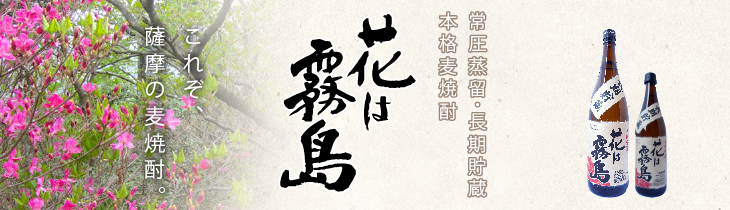 常圧蒸留・長期貯蔵
本格麦焼酎
花は
霧島
これぞ、
薩摩の麦焼酎。
長期貯蔵
花は
霧島
長期貯蔵
花は
霧島